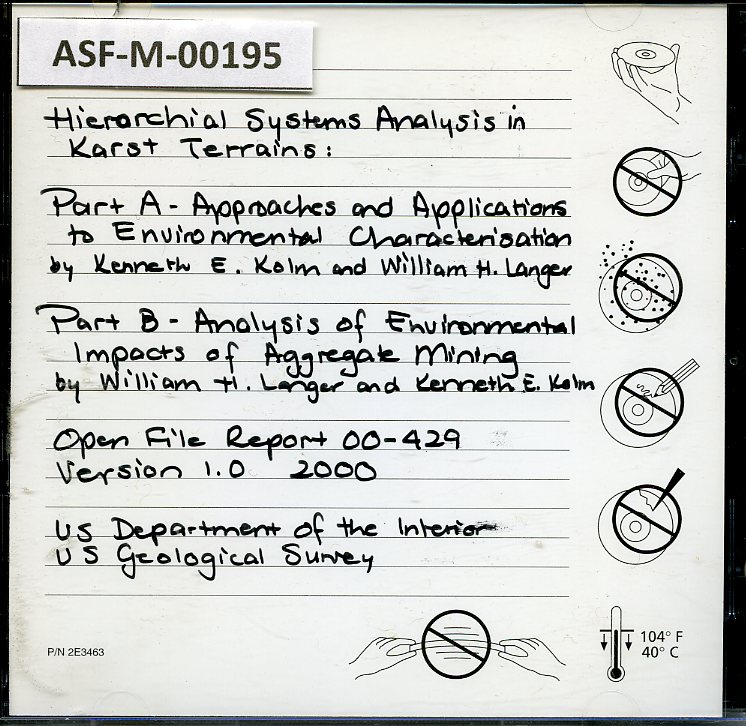 ASF-M-00195
Hierarchial Systems Analysis in
Karst Terrains:
Part A - Approaches and Applications
to Environmental Characterisation
by Kenneth E. Kolm and William H. Langer
Part B - Analysis of Environmental
Impacts of Aggregate Mining
by William H. Langer and Kenneth E. Kolm
Open File Report 00-429
Version 1.0 2000
US Department of the Interior
US Geological Survey
P/N 2E3463
104° F
40° C